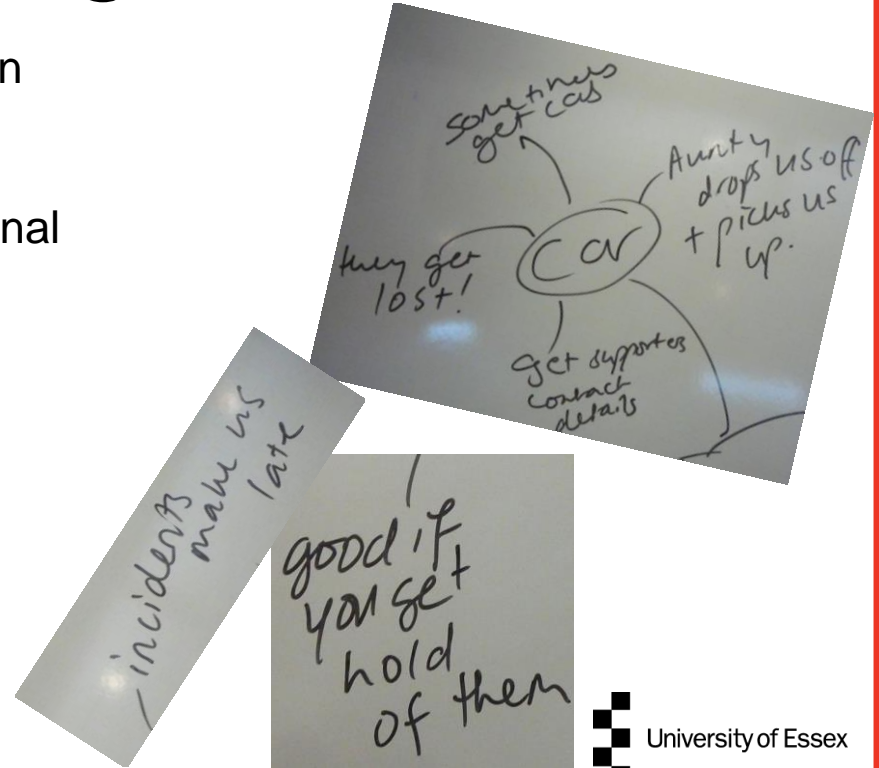 n
nal
sometimes
get cabs
Aunty
drops us off
+ picks us
up.
Car
they get
lost!
get supporters
contact
details
incidents
make us
late
good if
you get
hold
of them
University of Essex